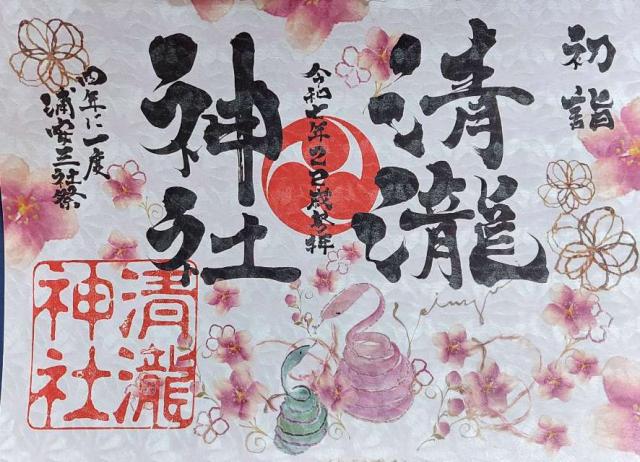 初詣
清瀧
神社
令和七年乙巳歳参拝
四年に一度
浦安三社祭
清瀧
神社